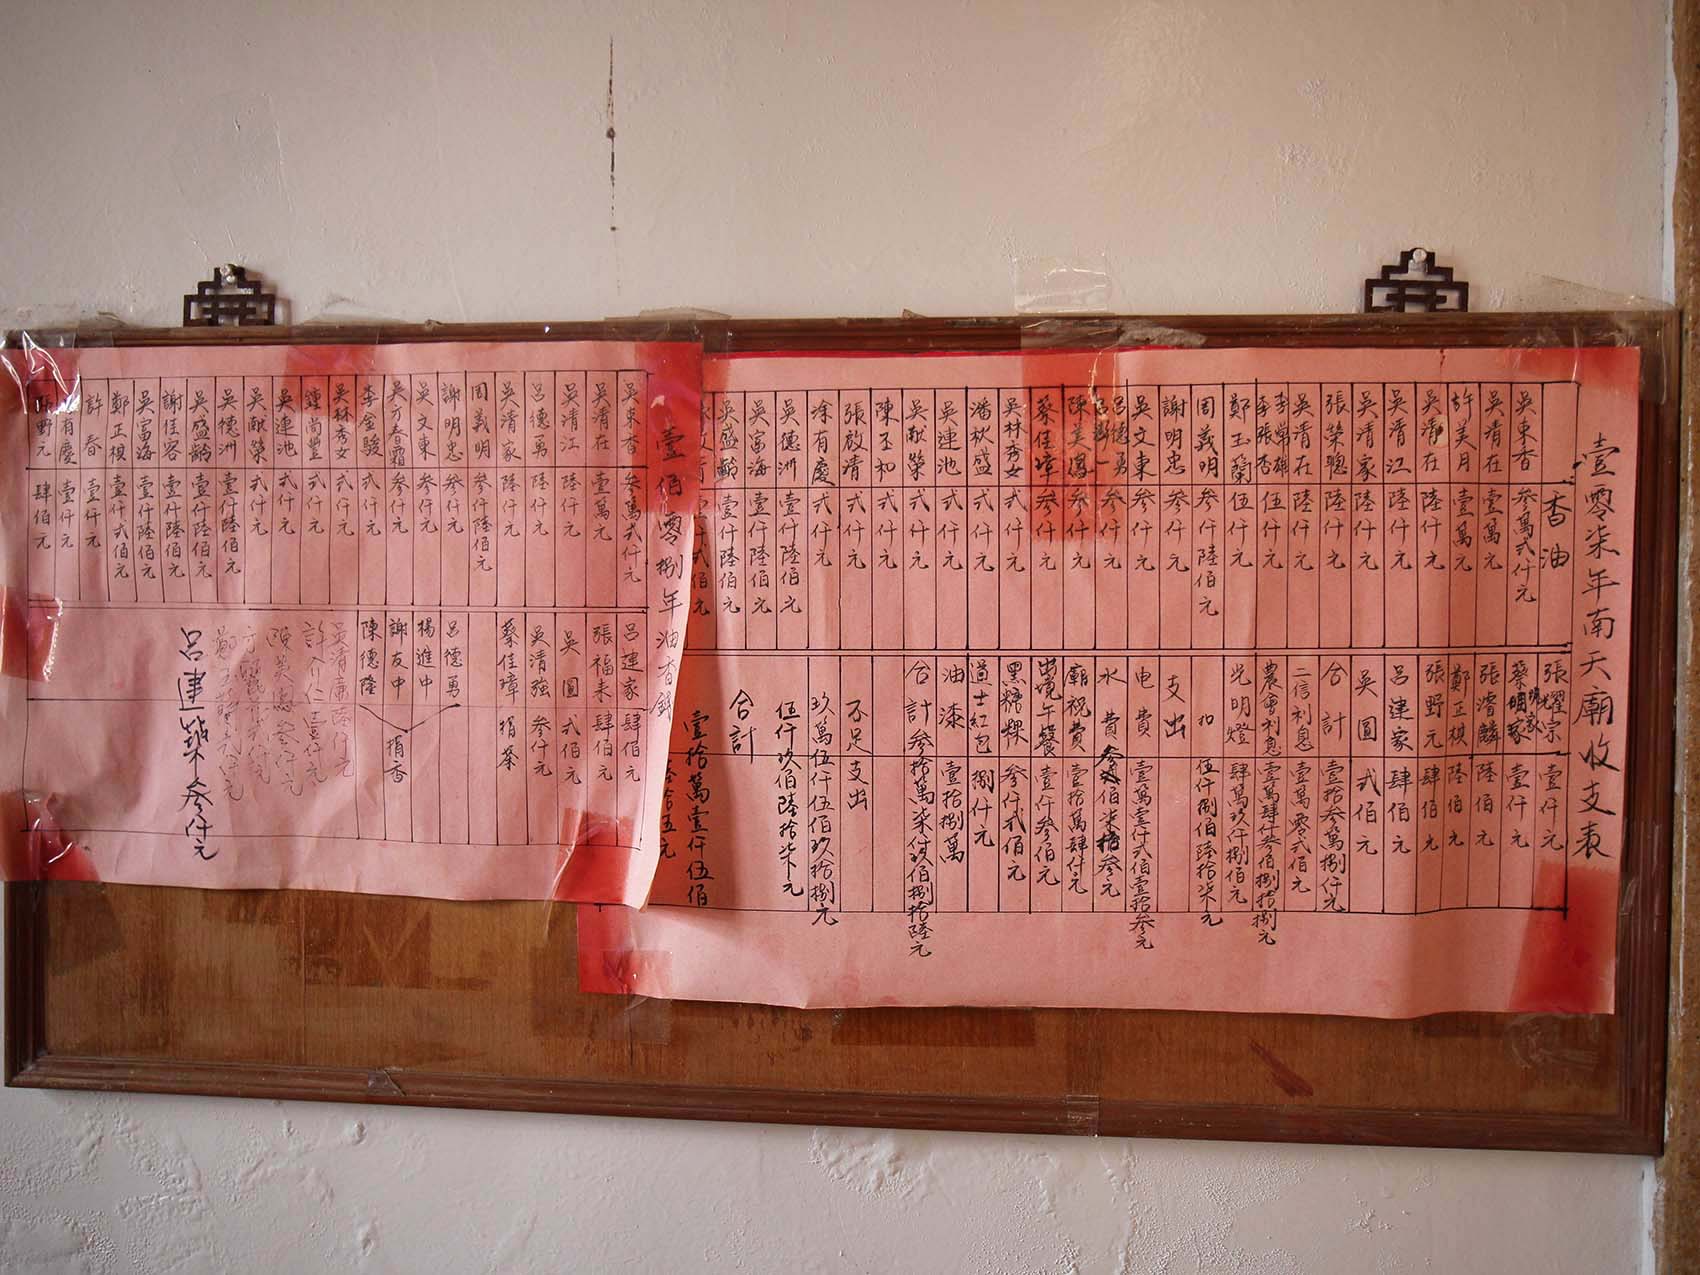 壹零柒年南天廟收支表
香油
吳東香 參萬弍仟元
吳清在 壹萬元
許美月 壹萬元
吳清在 陸仟元
吳清江 陸仟元
吳清家 陸仟元
張榮聰 陸仟元
吳清在 陸仟元
李張杏 伍仟元
鄭玉蘭 伍仟元
周義明 參仟陸佰元
謝明忠 參仟元
吳文東 參仟元
呂德勇 參仟元
陳美鳳 參仟元
蔡佳璋 參仟元
吳林秀女 弍仟元
潘秋盛 弍仟元
吳連池 弍仟元
吳献榮 弍仟元
陳丕和 弍仟元
張啟清 弍仟元
涂有慶 弍仟元
吳德洲 壹仟陸佰元
吳富海 壹仟陸佰元
吳盛齡 壹仟陸佰元
張耀宗 壹仟元
壹仟元
張濬麟 陸佰元
鄭正棋 陸佰元
張野元 肆佰元
呂建家 肆佰元
吳圓 弍佰元
合計 壹拾叁萬捌仟元
二信利息 壹萬零弍佰元
農會利息 壹萬肆仟參佰捌拾捌元
光明燈 肆萬玖仟捌佰元
扣 伍仟捌佰陸拾柒元
支出
电費 壹萬壹仟弍佰壹拾參元
水費
廟祝費 壹拾萬肆仟元
出境午餐 壹仟參佰元
黑糖粿 參仟弍佰元
道士紅包 捌仟元
油漆 壹拾捌萬
合計參拾萬柒仟玖佰捌拾陸元
不足支出
玖萬伍仟伍佰玖拾捌元
伍仟玖佰陸拾柒元
合計
壹拾萬壹仟伍佰
陸拾五元
壹佰零捌年油香錄
吳東香 參萬弍仟元
吳清在 壹萬元
吳清江 陸仟元
呂德勇 陸仟元
吳清家 陸仟元
周義明 參仟陸佰元
謝明忠 參仟元
吳文東 參仟元
吳方春霜 參仟元
李金駿 弍仟元
吳林秀女 弍仟元
鍾尚豐 弍仟元
吳連池 弍仟元
吳献榮 弍仟元
吳德洲 壹仟陸佰元
吳盛齡 壹仟陸佰元
謝佳容 壹仟陸佰元
吳富海 壹仟陸佰元
鄭正棋 壹仟弍佰元
許春 壹仟元
有慶 壹仟元
張野元 肆佰元
呂建家 肆佰元
張福来 肆佰元
吳圓 弍佰元
吳清強 參仟元
蔡佳璋 捐茶
呂德勇
楊進中
謝友中 捐香
陳德隆
吳清廉陸仟元
許介仁壹仟元
呂建築參仟元